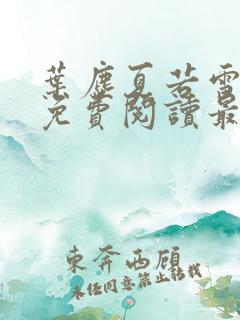 葉塵夏若雪
免費閱讀最
東奔西顧
未經同意禁止轉載